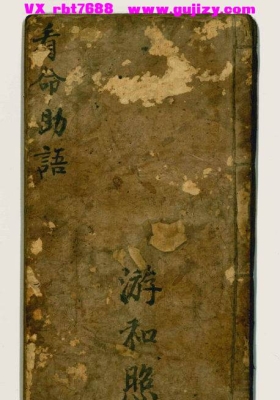 VX_rbt7688 www.gujizy.com
看命助語
游和照